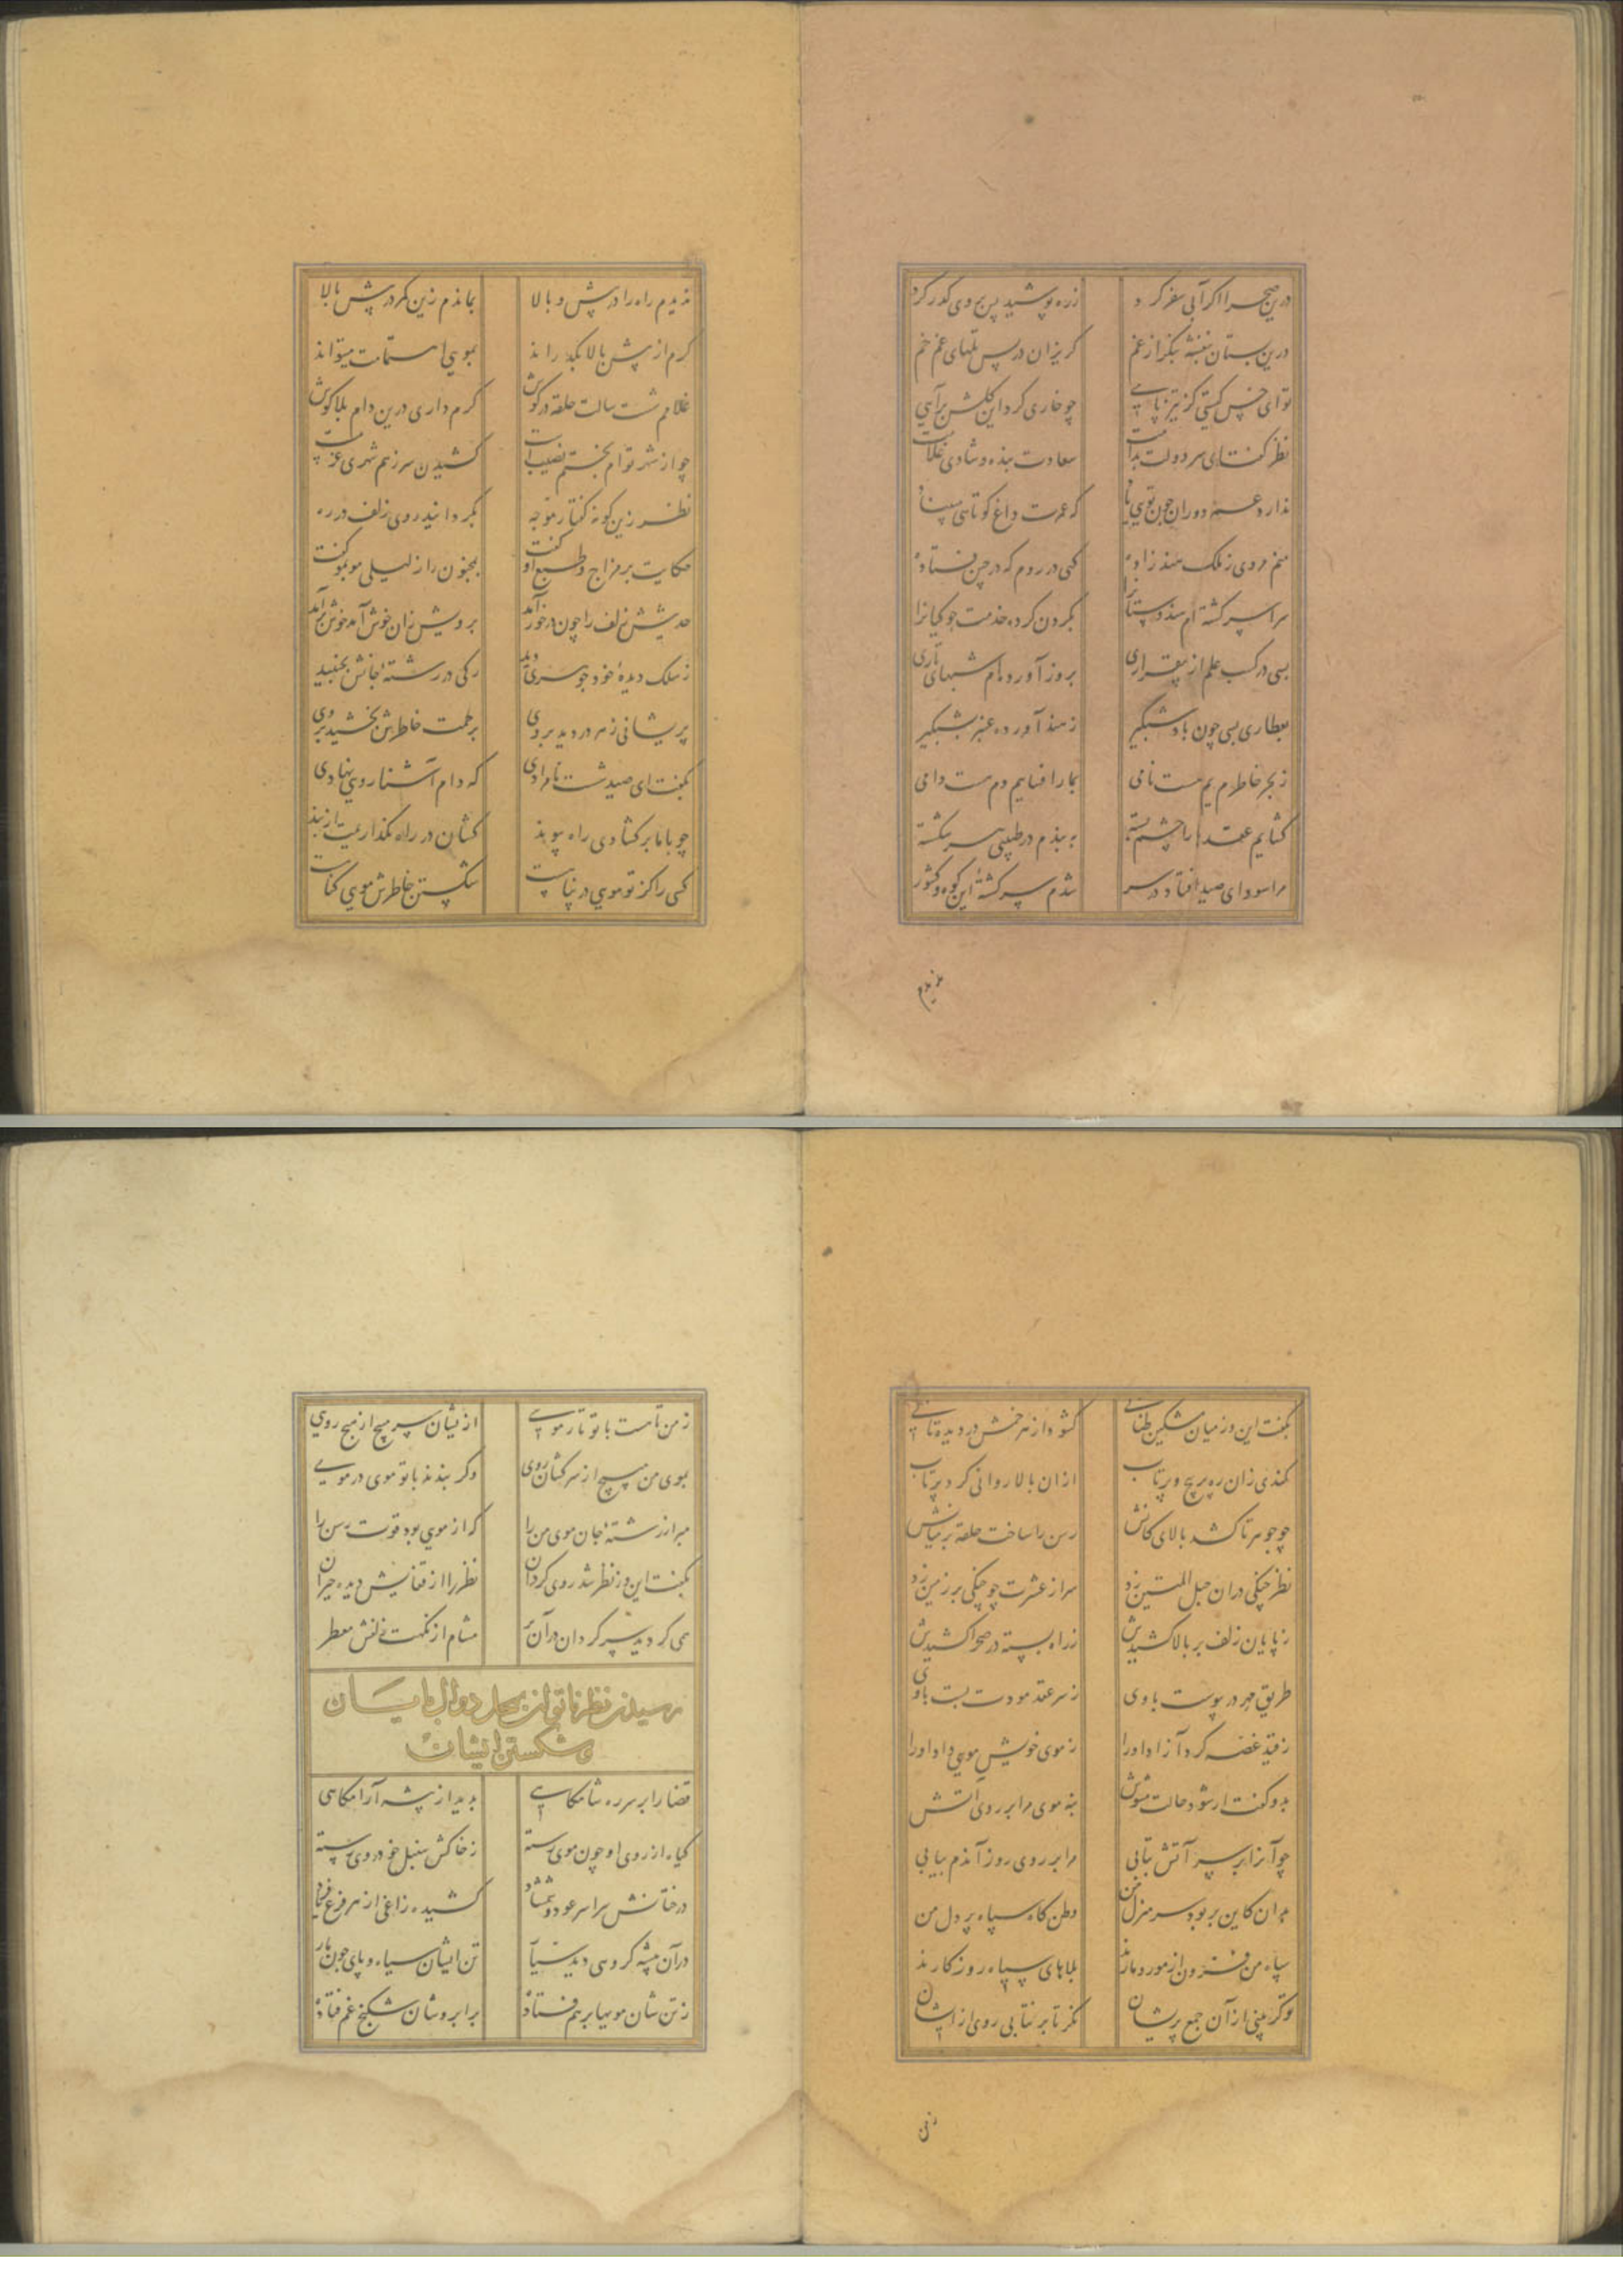 درین صحرا اگر آبی سفر کرد زره پوشید پس بر وی گذر کرد
درین بستان بنفشه بنکر از غم کریزان در پس تلهای غم خم
تو ای خس کیستی کز تیز پایی چو خاری کرد این کلشن برآیی
نظر کفت ای سر دولت بدامت سعادت بنده و شادی غلامت
ندارد عرصه دوران چون تویی یاد که عمرت داغ کوتاهی مبیناد
منم مردی ز ملک هند زاده کهی در روم که در چین فتاده
سراسر کشته ام هندوستانرا بکردن کرده خدمت جوکیانرا
بسی در کسب علم از بیقراری بروز آورده ام شبهای تاری
بعطاری بسی چون باد شبکیر ز هند آورده عنبر شبکیر
ز بحر خاطرم یم هست نامی بمار افسایم دم هست دامی
کشایم عقدها را چشم بسته به بندم در طپیی سر شکسته
مرا سودای صید افتاد در سر شدم سرکشته این کوه و کشور
ندیدم
ندیدم راه را در پیش و بالا بماندم زین کمر در پیش بالا
کرم از پیش بالا بکذراند بمویی همتت میتواند
غلامم شست سالت حلقه در کوش کرم داری درین دام بلا کوش
چو از شهر توام بختم نصیبست کشیدن سر ز هم شهری غریبست
نظر زین کونه کفتار موجه بکردانید روی زلف در ره
حکایت بر مزاج و طبع او کفت بمجنون راز لیلی مو بمو کفت
حدیثش زلف را چون در خور آمد برویش زان خوش آمد خوش برآمد
ز سلک دیده خود جوهری دید رکی در رشته جانش بجنبید
پریشانی ز سر در دید بر وی برحمت خاطرش بخشید بر وی
بکفت ای صید شست نامرادی که دام آشنا رویی نهادی
چو با ما بر کشادی راه پیوند کشان در راه نکذاریمت از بند
کسی را کز تو مویی در پناهست شکستن خاطرش مویی کناهست
بکفت این وز میان مشکین طنابی کشود از هر خمش در دیده تابی
کمندی زان ره پر پیچ و پر تاب از ان بالا روانی کرد پرتاب
چو جوهر تا کشد بالای کانش رسن را ساخت حلقه بر میانش
نظر چنکی در ان حبل المتین زد سر از عشرت چو چنکی بر زمین زد
ز پایان زلف بر بالا کشیدش ز راه بسته در صحرا کشیدش
طریق مهر در پیوست با وی ز سر عقد مودت بست با وی
ز قید غصه کرد آزاد او را ز موی خویش مویی داد او را
بدو کفت ار شود حالت مشوش بنه موی مرا بر روی آتش
چو آنرا بر سر آتش بتابی مرا بر روی روز آندم بیابی
بدان کاین بر بود سر منزل من وطن کاه سپاه پر دل من
سپاه من فزون از مور و مارند بلاهای سیاه روزکارند
وکر بینی از آن جمع پریشان نکر تا بر نتابی روی از ایشان
ز من
ز من تا هست با تو تار مویی از ایشان سر مپیچ از هیچ رویی
بموی من مپیچ از سرکشان روی وکر بندند با تو موی در مویی
مبر از رشته جان موی من را که از مویی بود قوت رسن را
بکفت این وز نظر شد روی کردان نظر را از قفایش دیده حیران
همی کردید سرکردان در آن بر مشام از نکهت زلفش معطر
رسیدن نظر ناتوان بمحل دوال پایان
و شکستن ایشان
قضا را بر سر ره شامکاهی بدید از پیشه آرامکاهی
کیاه از روی او چون موی رسته ز خاکش سنبل خودروی رسته
درختانش سراسر عود و شمشاد کشیده زاغی از هر فرع فریاد
در آن بیشه کروهی دید بسیار تن ایشان سیاه و پای چون مار
ز تن شان مویها بر هم فتاده بر ابروشان شکنج غم فتاده